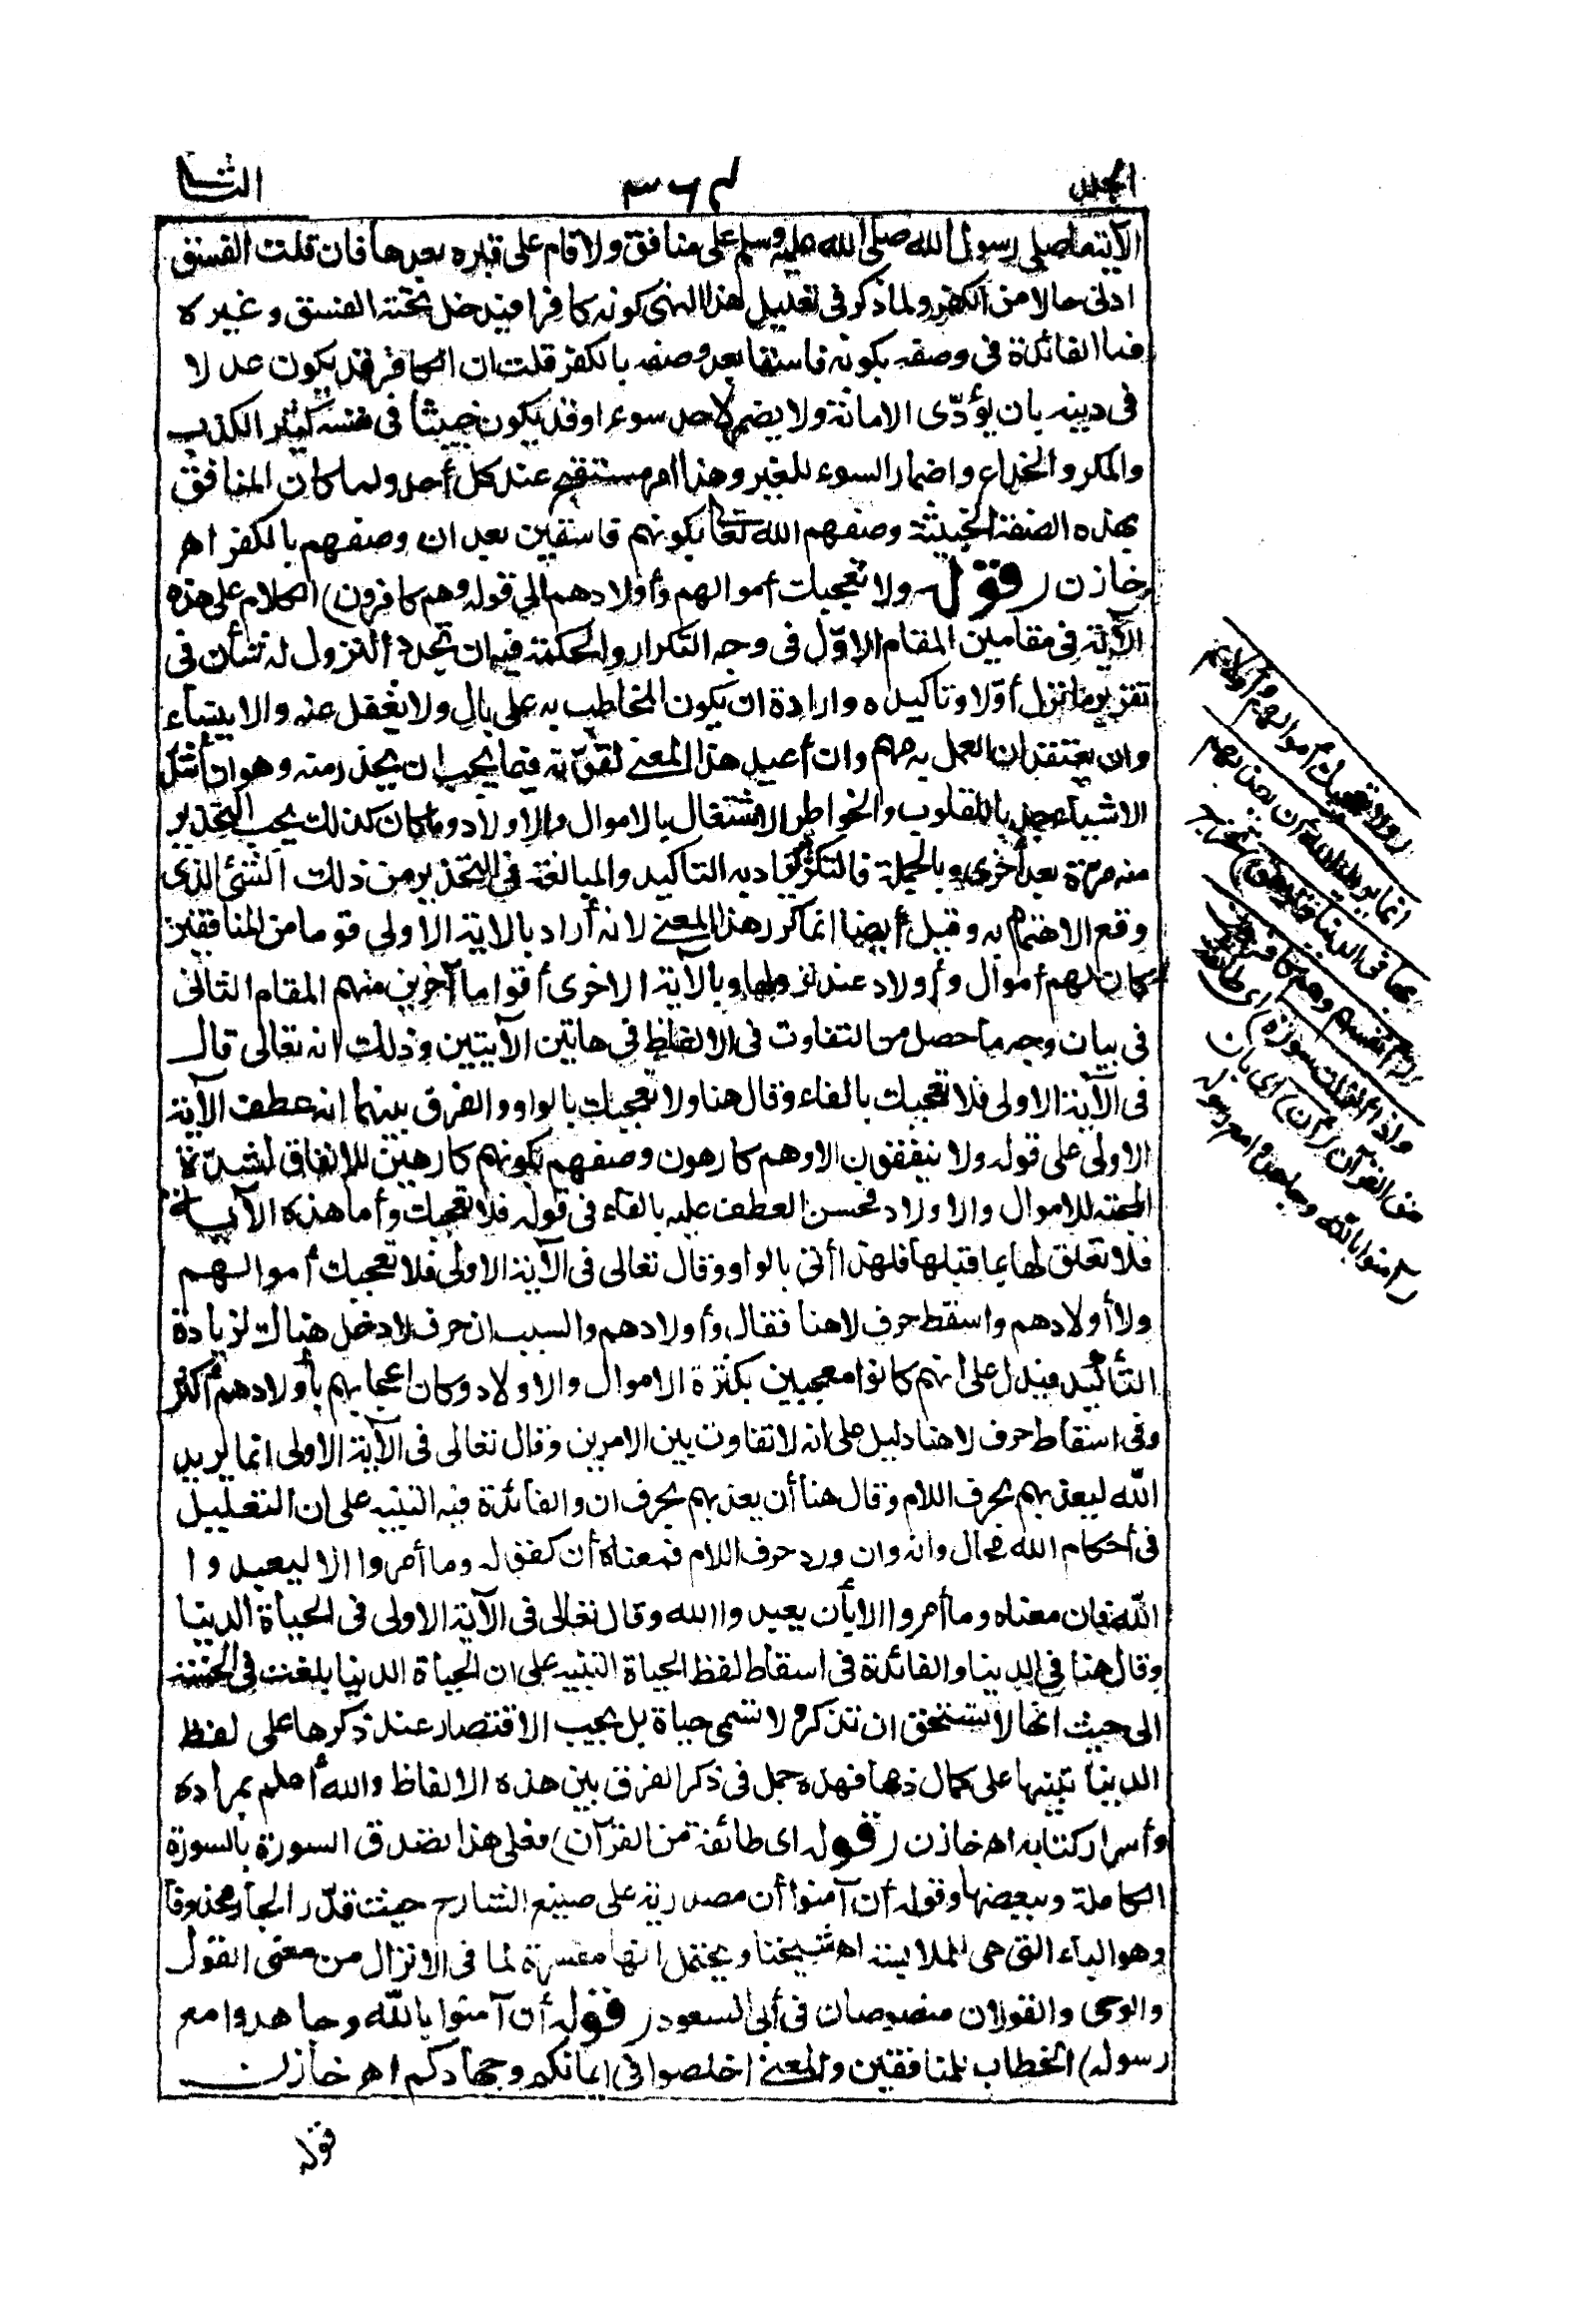 المجلد ٣٦٢ الثا
الآية فما صلى رسول الله صلى الله عليه وسلم على منافق ولا قام على قبره بعدها فان قلت الفسق
ادنى حالا من الكفر ولما ذكر فى تعليل هذا النهى كونه كافرا فيدخل تحته الفسق وغيره
فما الفائدة فى وصفه بكونه فاسقا بعد وصفه بالكفر قلت ان الكافر قد يكون عدلا
فى دينه بان يؤدّى الامانة ولا يضمر لاحد سوء اوقد يكون خبيثا فى نفسه كثير الكذب
والمكر والخداع واضمار السوء للغير وهذا امر مستقبح عند كل أحد ولما كان المنافق
بهذه الصفة الخبيثة وصفهم الله تعالى بكونهم فاسقين بعد ان وصفهم بالكفر اهـ
خازن (قوله ولا تعجبك أموالهم وأولادهم الى قوله وهم كافرون) الكلام على هذه
الآية فى مقامين المقام الاوّل فى وجه التكرار والحكمة فيه ان تجدد النزول له شأن فى
تقرير ما نزل أوّلا وتاكيده وارادة ان يكون المخاطب به على بال ولا يغفل عنه ولا ينساه
وان يعتقد ان العمل به مهم وان أعيد هذا المعنى لقوّته فيما يجب ان يحذر منه وهو ان أشدّ
الاشياء جذبا للقلوب والخواطر الاشتغال بالاموال والاولاد وما كان كذلك يجب التحذير
منه مرّة بعد أخرى وبالجملة فالتكرير يراد به التاكيد والمبالغة فى التحذير من ذلك الشئ الذى
وقع الاهتمام به وقيل أيضا انما كرر هذا المعنى لانه أراد بالاية الاولى قوما من المنافقين
كان لهم أموال وأولاد عند نزولها وبالآية الاخرى أقواما آخرين منهم المقام الثانى
فى بيان وجه ما حصل من التفاوت فى الالفاظ فى هاتين الآيتين وذلك انه تعالى قال
فى الآية الاولى فلا تعجبك بالفاء وقال هنا ولا تعجبك بالواو والفرق بينهما انه عطف الآية
الاولى على قوله ولا ينفقون الا وهم كارهون وصفهم بكونهم كارهين للانفاق لشدّة
المحبة للاموال والاولاد فحسن العطف عليه بالفاء فى قوله فلا تعجبك وأما هذه الآية
فلا تعلق لها بما قبلها فلهذا أتى بالواو وقال تعالى فى الآية الاولى فلا تعجبك أموالهم
ولا أولادهم واسقط حرف لا هنا فقال وأولادهم والسبب ان حرف لا دخل هناك لزيادة
التأكيد فيدل على انهم كانوا معجبين بكثرة الاموال والاولاد وكان اعجابهم بأولادهم أكثر
وفى اسقاط حرف لا هنا دليل على انه لا تفاوت بين الامرين وقال تعالى فى الآية الاولى انما يريد
الله ليعذبهم بحرف اللام وقال هنا أن يعذبهم بحرف ان والفائدة فيه التنبيه على ان التعليل
فى أحكام الله محال وانه وان ورد حرف اللام فمعناه أن كقوله وما أمروا الا ليعبدوا
الله فان معناه وما أمروا الا بأن يعبدوا الله وقال تعالى فى الآية الاولى فى الحياة الدنيا
وقال هنا فى الدنيا والفائدة فى اسقاط لفظ الحياة التنبيه على ان الحياة الدنيا بلغت فى الخسة
الى حيث انها لا تستحق ان تذكر ولا تسمى حياة بل يجب الاقتصار عند ذكرها على لفظ
الدنيا تنبيها على كمال ذمها فهذه جمل فى ذكر الفرق بين هذه الالفاظ والله أعلم بمراده
وأسرار كتابه اهـ خازن (قوله اى طائفة من القرآن) فعلى هذا تصدق السورة بالسورة
الكاملة وببعضها وقوله أن آمنوا أن مصدرية على صنيع الشارح حيث قدّر الجار محذوفا
وهو الباء التى هى للملابسة اهـ شيخنا ويحتمل انها مفسرة لما فى الانزال من معنى القول
والوحى والقولان منصوصان فى أبى السعود (قوله أن آمنوا بالله وجاهدوا مع
رسوله) الخطاب للمنافقين والمعنى اخلصوا فى ايمانكم وجهادكم اهـ خازن
(ولا تعجبك أموالهم وأولادهم
انما يريد الله أن يعذبهم
بها فى الدنيا وتزهق) تخرج
(أنفسهم وهم كافرون
واذا أنزلت سورة) اى طائفة
من القرآن (أن) اى بان
(آمنوا بالله وجاهدوا مع رسوله
قوله